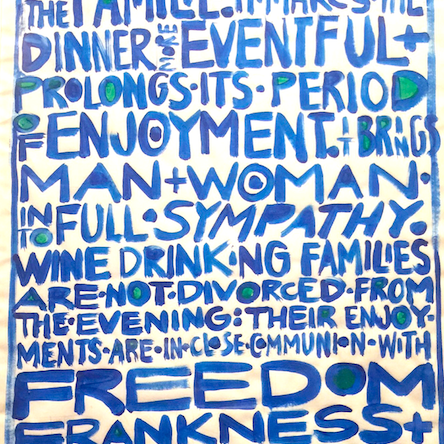 THE IT MAKES THE
DINNER MORE EVENTFUL +
PROLONGS·ITS·PERIOD
OF ENJOYMENT. IT BRINGS
MAN + WOMAN·
INTO FULL·SYMPATHY.
WINE DRINKING FAMILIES
ARE·NOT·DIVORCED·FROM
THE·EVENING: THEIR ENJOY-
MENTS·ARE·IN·CLOSE·COMMUNION·WITH
FREEDOM
FRANKNESS +